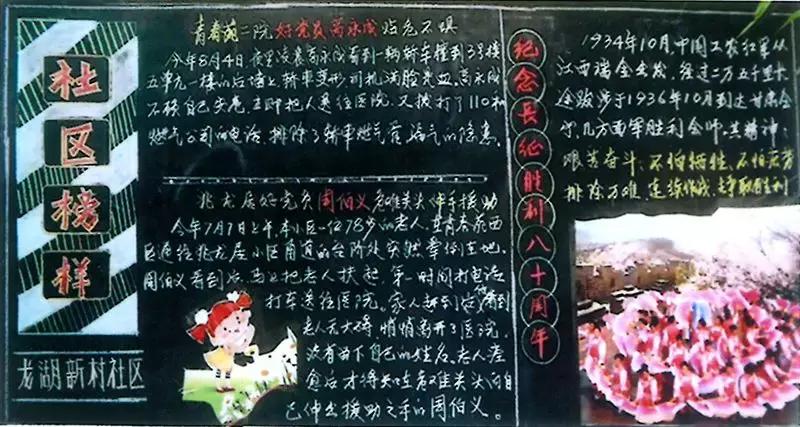 社区榜样
龙湖新村社区
青春苑二院好党员高永成临危不惧
今年8月4日夜里凌晨高永成看到一辆轿车撞到3号楼
五单元一楼的后墙上轿车变形司机满脸是血。高永成
不顾自己安危立即把人送往医院。又拨打了110和
燃气公司的电话,排除了轿车燃气管漏气的隐患。
兆龙居好党员周伯义危难关头伸手援助
今年7月7日上午,本小区一位78岁的老人,在青春苑西
区通往兆龙居小区角道的台阶处突然晕倒在地。
周伯义看到后,马上把老人扶起,第一时间打电话
打车送往医院。家人赶到后看到
老人无大碍,悄悄离开了医院,
没有留下自己的姓名。老人痊
愈后才得知在危难关头向自
己伸出援助之手的周伯义。
纪念长征胜利八十周年
1934年10月,中国工农红军从
江西瑞金出发,经过二万五千里长
途跋涉于1936年10月到达甘肃会
宁,几方面军胜利会师。其精神:
艰苦奋斗、不怕牺牲、不怕
排除万难、连续作战、去争取胜利